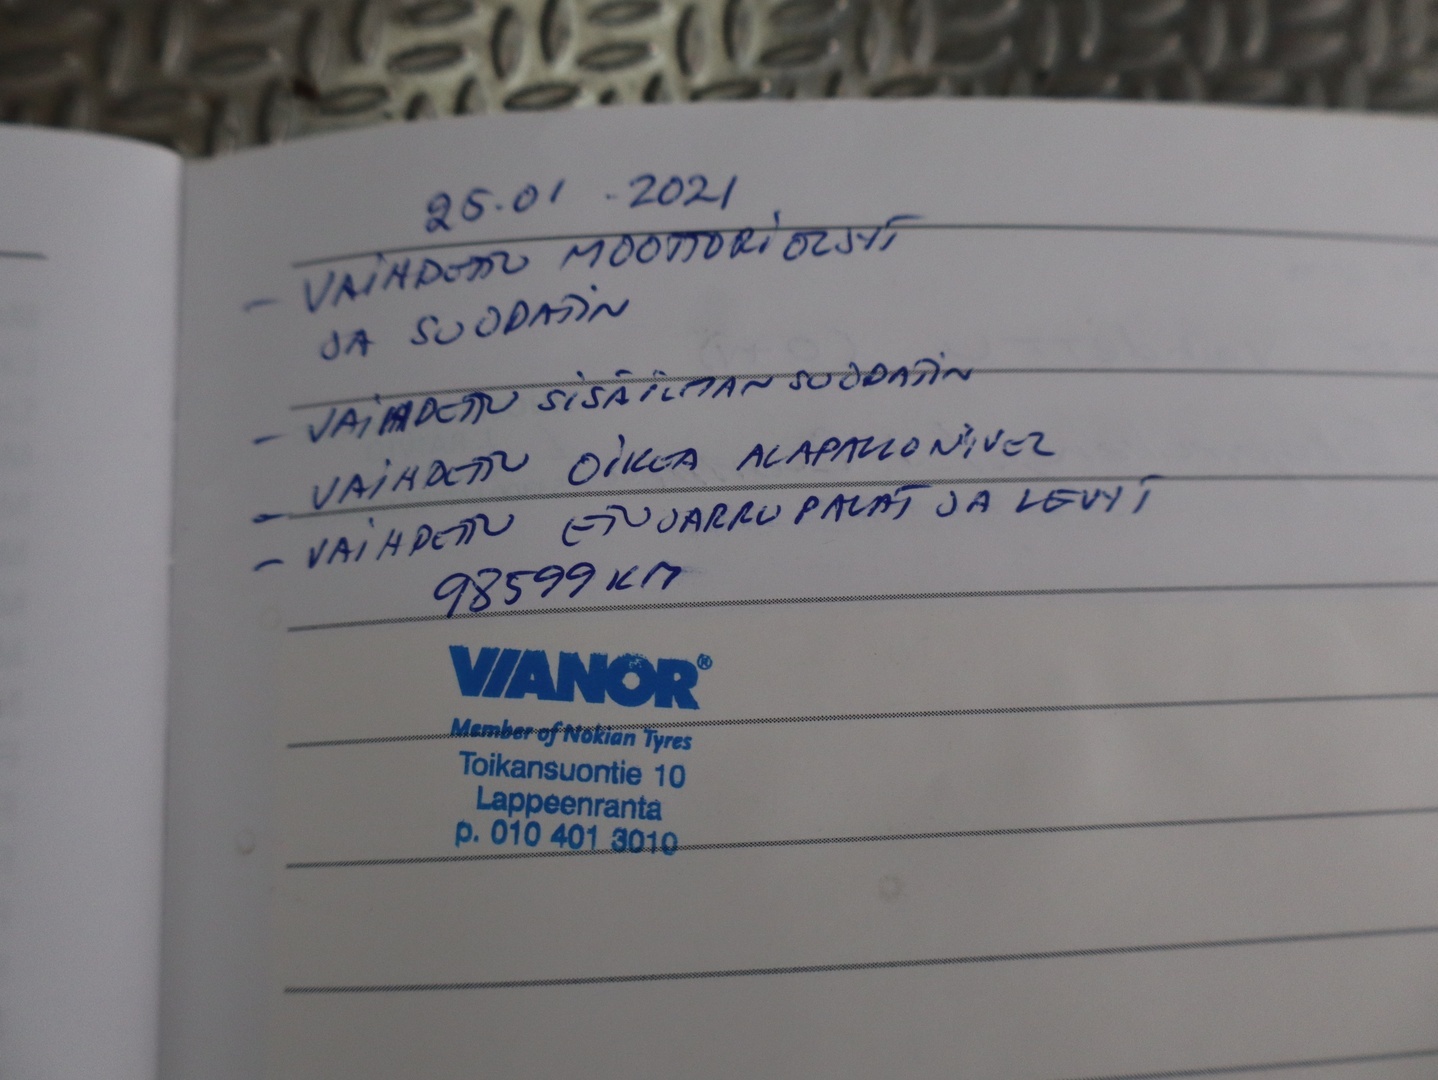 25.01.2021
- VAIHDETTU MOOTTORIÖLJYT
JA SUODATIN
- VAIHDETTU SISÄILMAN SUODATIN
- VAIHDETTU OIKEA ALAPALLONIVEL
- VAIHDETTU ETUJARRUPALAT JA LEVYT
98599 KM
VIANOR®
Member of Nokian Tyres
Toikansuontie 10
Lappeenranta
p. 010 401 3010